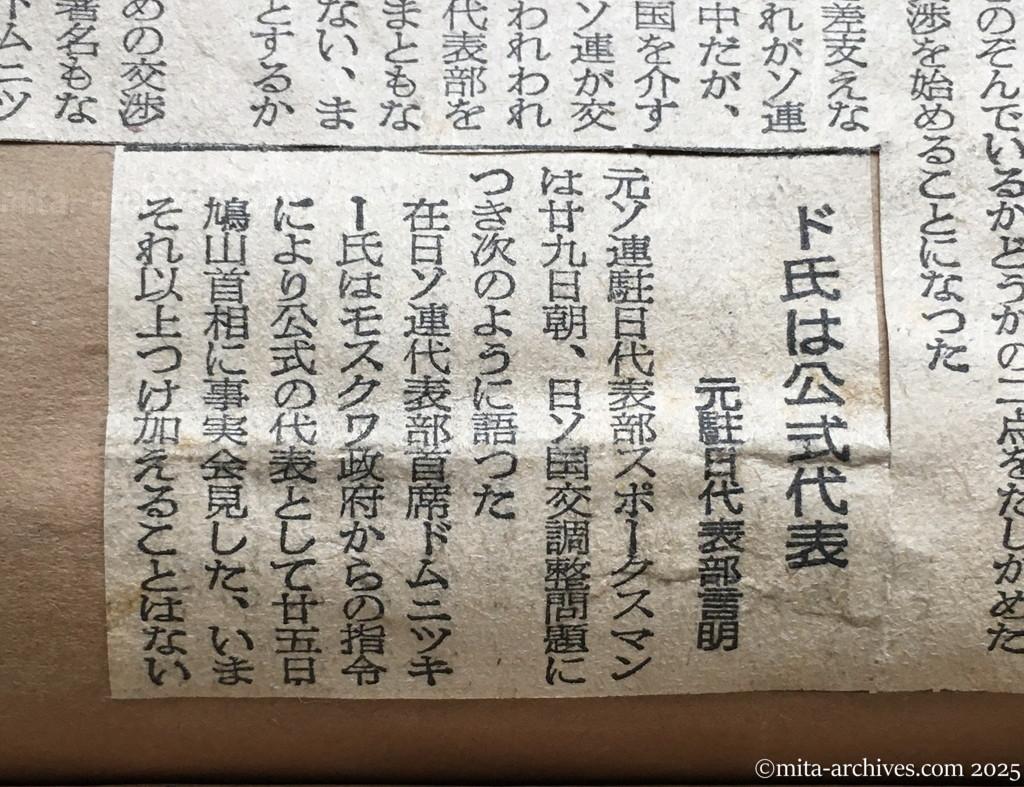 のぞんでいるかどうかの二点をたしかめた
渉を始めることになつた
差支えな
れがソ連
中だが、
国を介す
ソ連が交
われわれ
代表部を
まともな
ない、ま
とするか
めの交渉
著名もな
ドムニツ
ド氏は公式代表
元駐日代表部言明
元ソ連駐日代表部スポークスマン
は廿九日朝、日ソ国交調整問題に
つき次のように語つた
在日ソ連代表部首席ドムニツキ
ー氏はモスクワ政府からの指令
により公式の代表として廿五日
鳩山首相に事実会見した、いま
それ以上つけ加えることはない
©mita-archives.com 2025